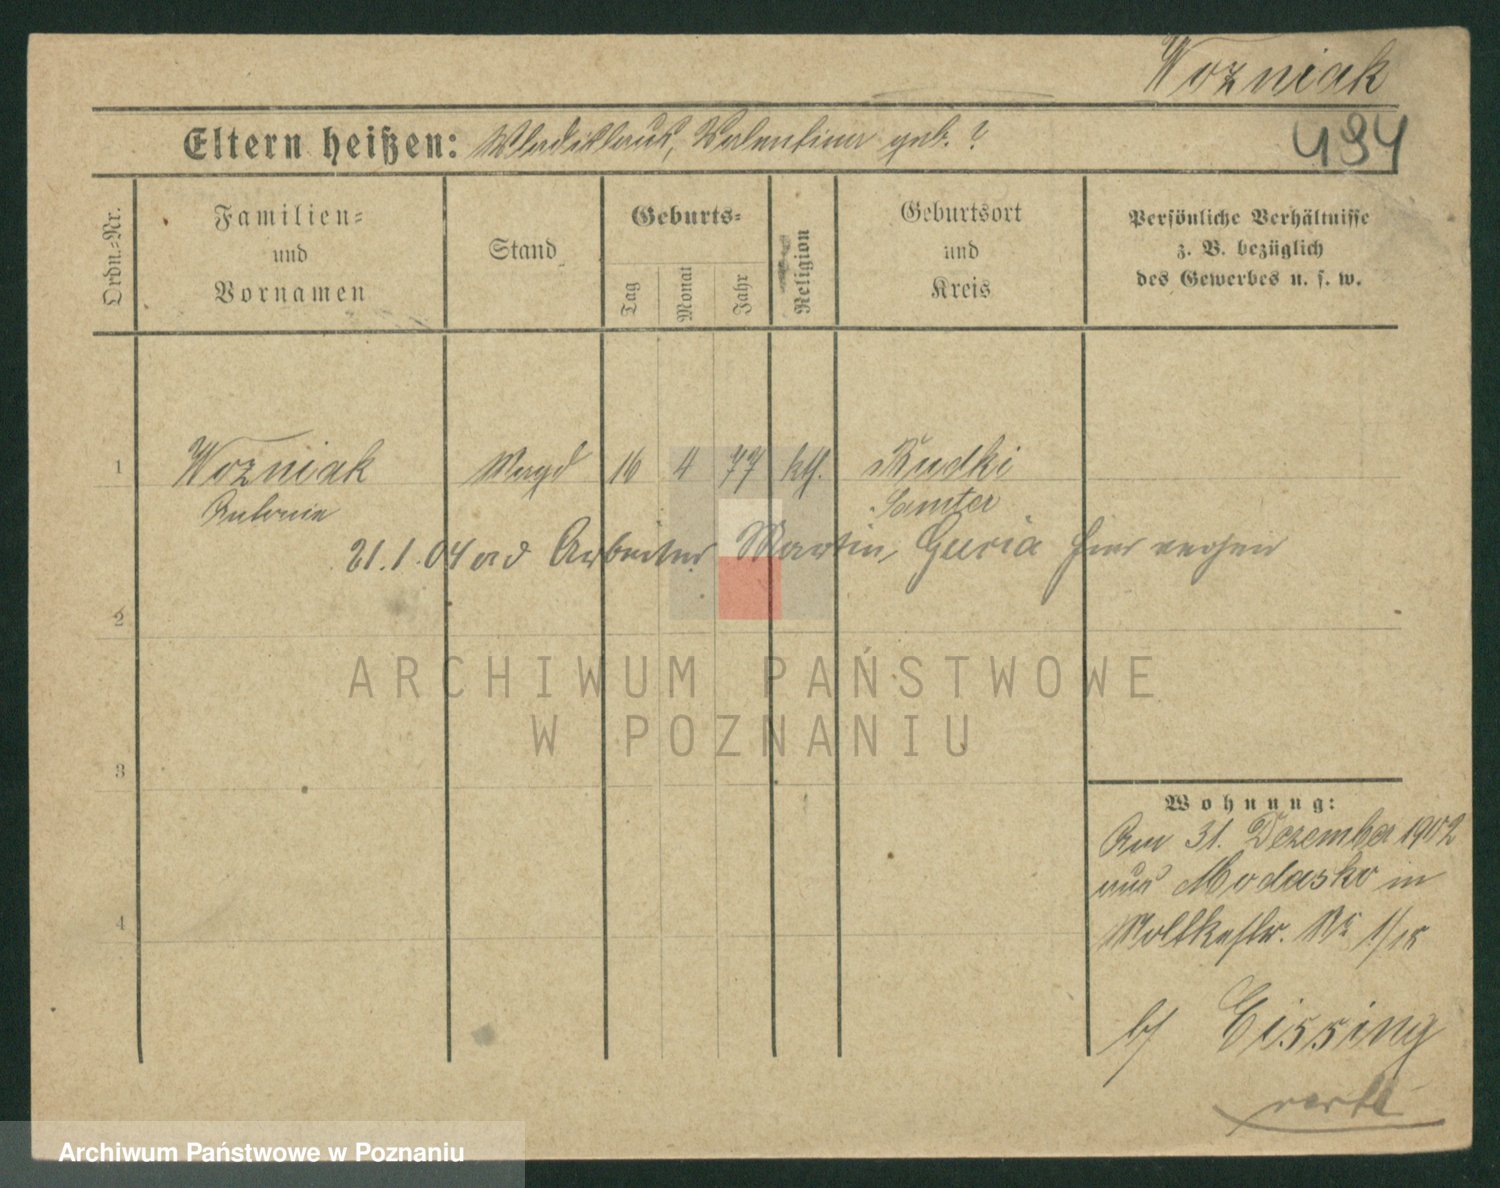 Wozniak
Eltern heißen: Wladislaus, Valentina geb. ?
494
Ordn.-Nr.
Familien-
und
Vornamen
Stand
Geburts-
Tag
Monat
Jahr
Religion
Geburtsort
und
Kreis
Persönliche Verhältnisse
z. B. bezüglich
des Gewerbes u. s. w.
1 Wozniak Magd 16 4 77 kth. Rudki
Antonie Samter
21.1.04 Arbeiter Martin Guria hier
2
ARCHIWUM PAŃSTWOWE
W POZNANIU
3
Wohnung:
Am 31. Dezember 1902
aus Modasko in
4
Moltkestr. No 1/15
b/ Eissing
verte
Archiwum Państwowe w Poznaniu